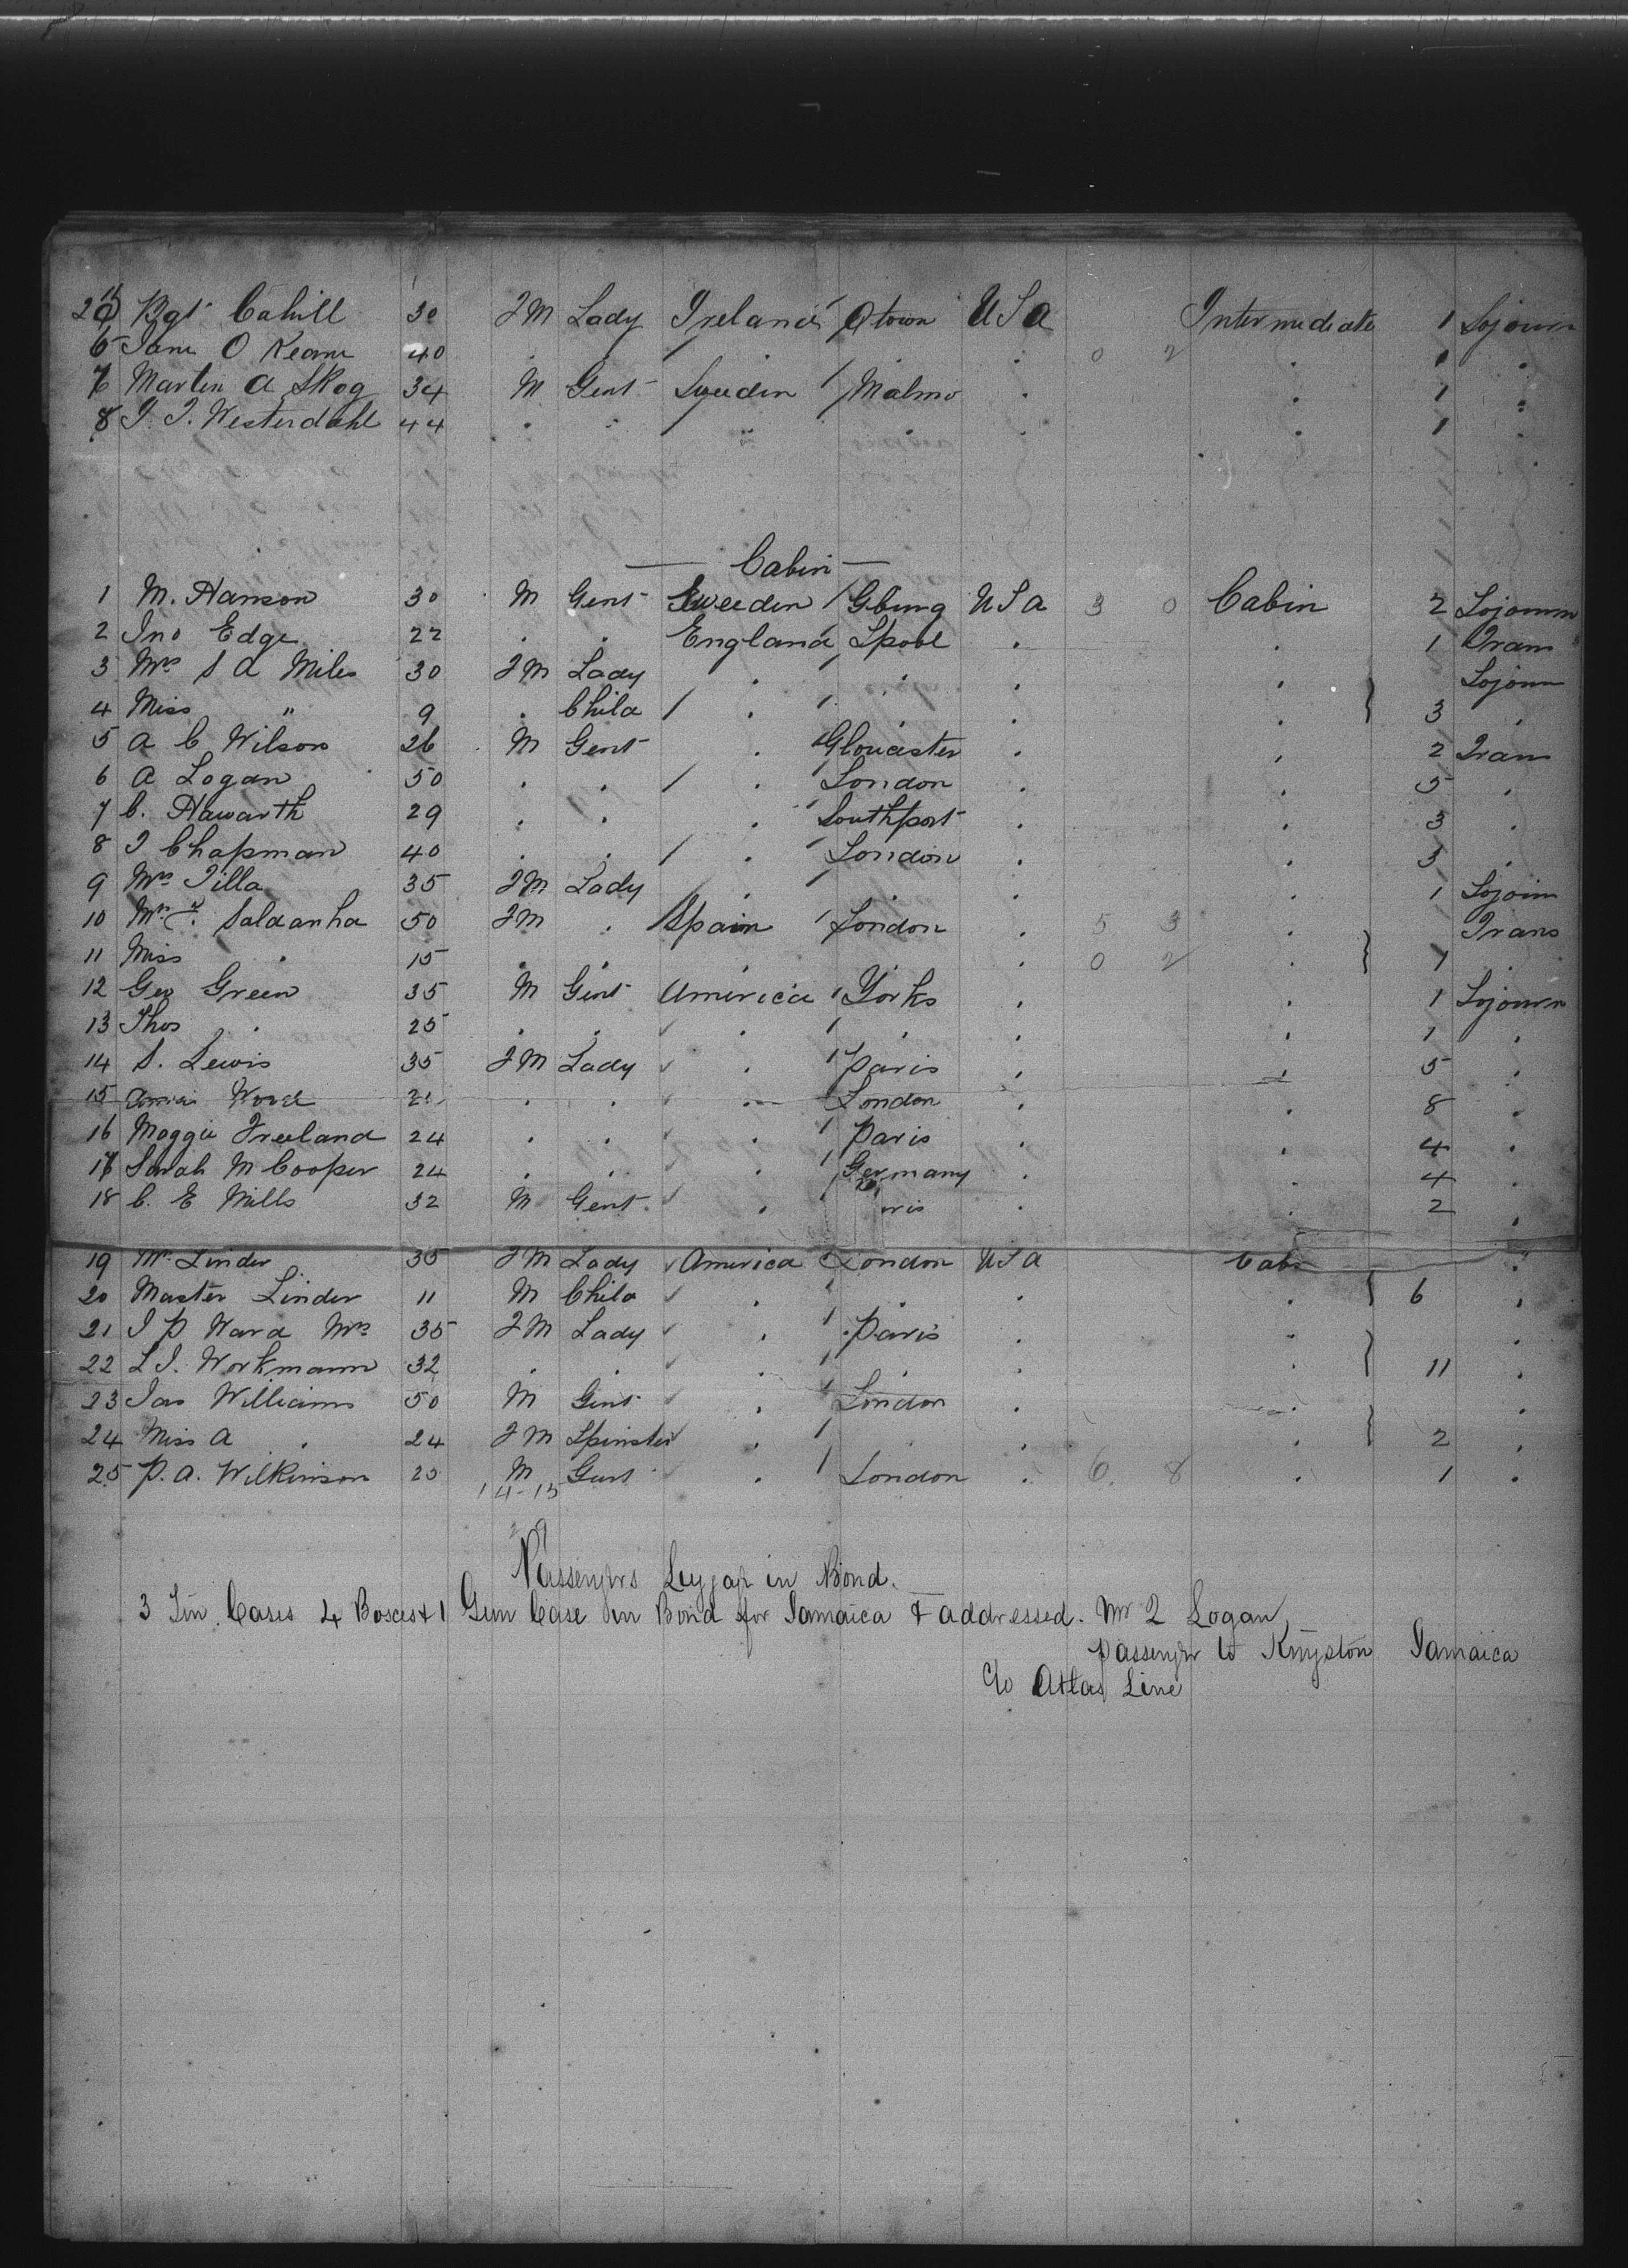 Bgt Cahill 30 FM Lady Ireland Qtown USA Intermediate 1 Sojourn
6 Jane O Keane 40 . . . . . 0 2 . 1 .
7 Martin A Skog 34 M Gent Sweden Malmo . . 1 .
8 Westerdahl 44 . . . . . . 1 .
— Cabin —
1 M. Hanson 30 M Gent Sweeden Gburg USA 3 0 Cabin 2 Sojourn
2 Jno Edge 22 . . England Lpool . . 1 Trans
3 Mrs S A Miles 30 FM Lady . . . . Sojourn
4 Miss " 9 . Child . . . . 3 .
5 A C Wilson 26 M Gent . Gloucester . . 2 Trans
6 A Logan 50 . . . London . . 5 .
7 C. Haworth 29 . . . Southport . . 3 .
8 J Chapman 40 . . . London . . 3 .
9 Mrs Tilla 35 FM Lady . . . . 1 Sojourn
10 Saldanha 50 FM . Spain London . 5 3 . Trans
11 Miss . 15 . . . . . 0 2 . 1 .
12 Geo Green 35 M Gent America Yorks . . 1 Sojourn
13 Thos . 25 . . . . . . 1 .
14 S. Lewis 35 FM Lady . Paris . . 5 .
15 Wood . . . London . . 8 .
16 Maggie Freeland 24 . . . Paris . . 4 .
17 Sarah M Cooper 24 . . . Germany . . 4 .
18 C. E Mills 32 M Gent . . . 2 .
19 Linder 35 FM Lady America London USA .
20 Master Linder 11 M Child . . . . 6 .
21 J P Ward Mrs 35 FM Lady . Paris . . .
22 L J. Workmann 32 . . . . . . 11 .
23 Jas Williams 50 M Gent . London . . .
24 Miss A . 24 FM Spinster . . . . 2 .
25 P. A. Wilkinson M Gent . London . 6 8 . 1 .
14-15
Passengers Luggage in Bond.
3 Tin Cases 4 Boxes & 1 Gun Case in Bond for Jamaica & addressed. Mr Logan
passenger to Kingston Jamaica
C/o Atlas Line